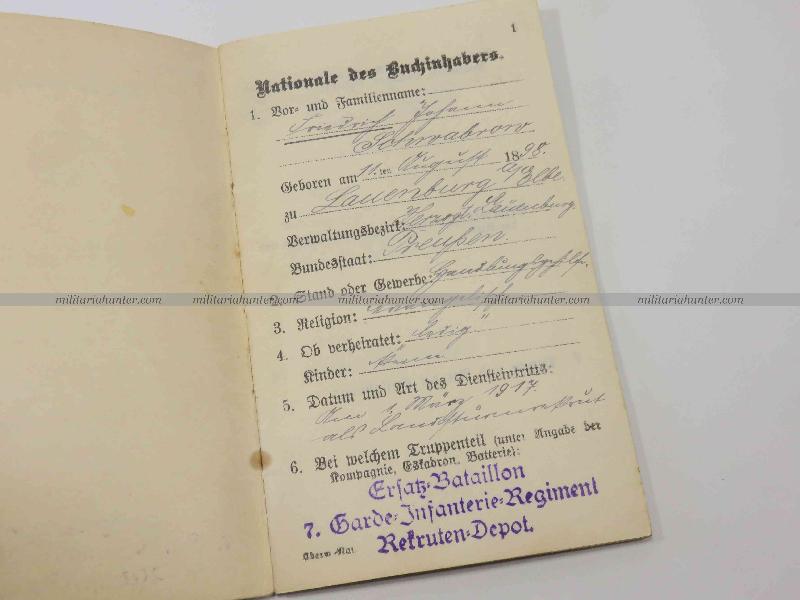 1
Nationale des Buchinhabers.
1. Vor- und Familienname:
Friedrich Johann
Schwabrow
Geboren am 11.ten August 1898.
zu Lauenburg a/d Elbe.
Verwaltungsbezirk: Herzogt. Lauenburg
Bundesstaat: Preußen.
2. Stand oder Gewerbe: Handlungsgehilfe.
militariahunter.com militariahunter.com militariahunter.com militariahunter.com militariahunter.com militariahunter.com
3. Religion: evangelisch
4. Ob verheiratet: ledig
Kinder: keine
5. Datum und Art des Diensteintritts:
Am 1. März 1917
als Landsturmrekrut
6. Bei welchem Truppenteil (unter Angabe der
Kompagnie, Eskadron, Batterie):
Ersatz-Bataillon
7. Garde-Infanterie-Regiment
Rekruten-Depot.